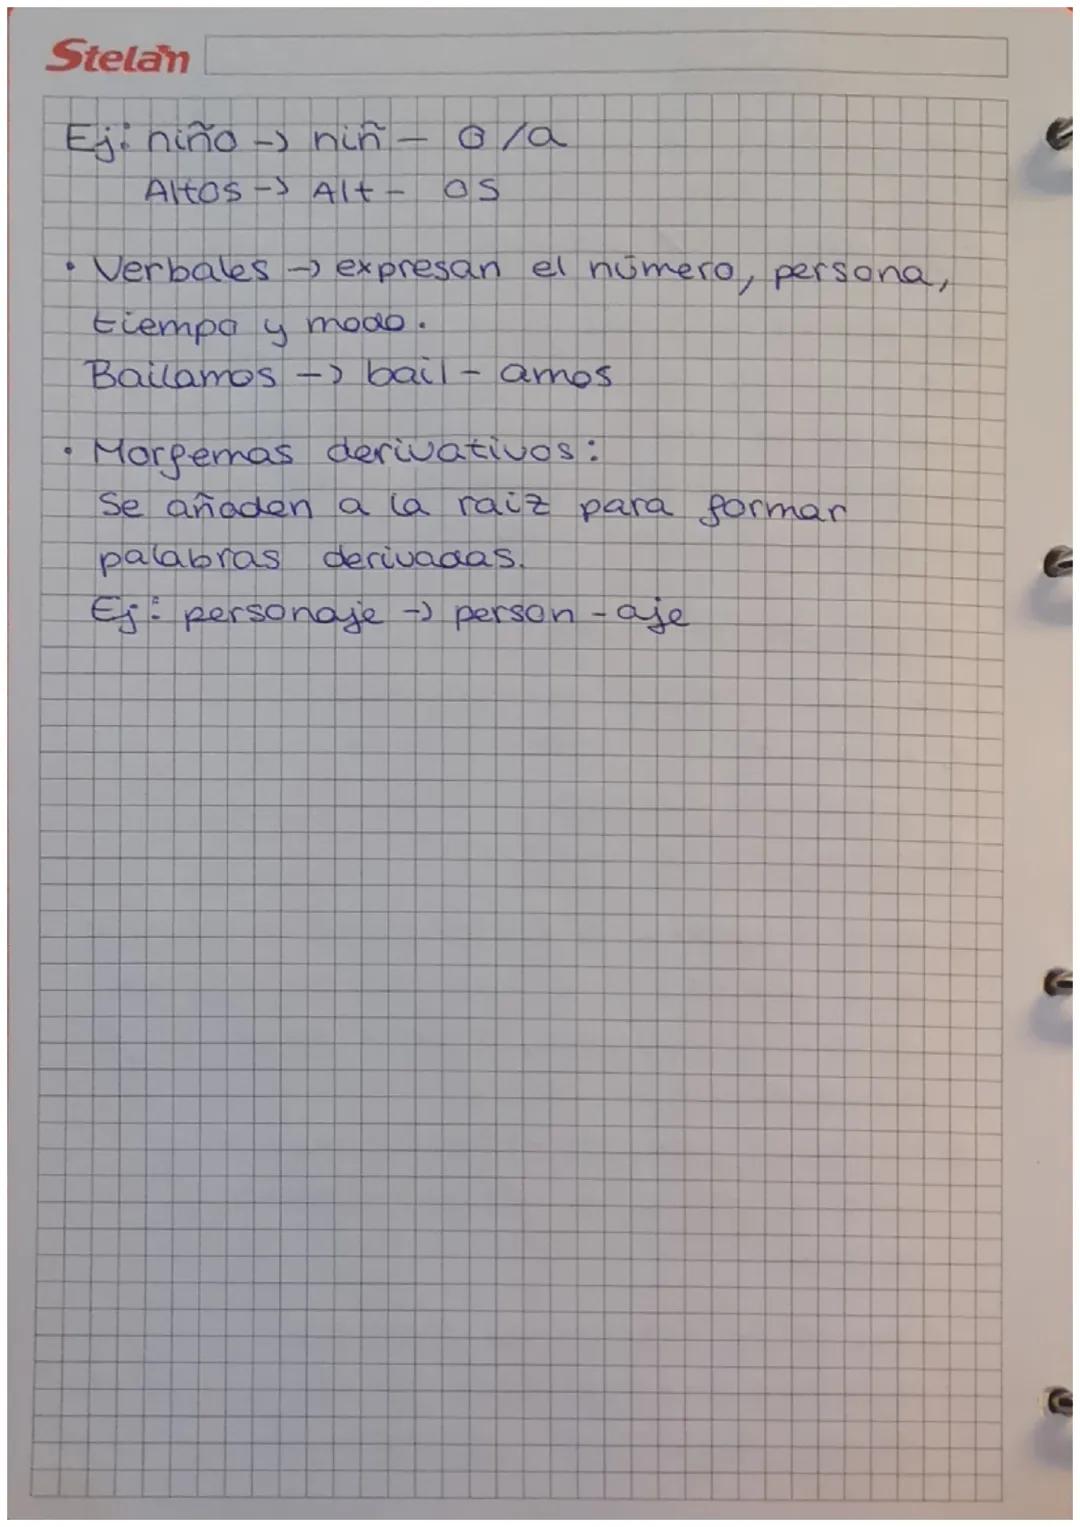 Stelan
Ej: niño -> niñ - o/a
Altos -> Alt - os
• Verbales -> expresan el número, persona,
tiempo y modo.
Bailamos -> bail - amos
• Morfemas derivativos:
Se añaden a la raiz para formar
palabras derivadas.
Ej: personaje -> person - aje